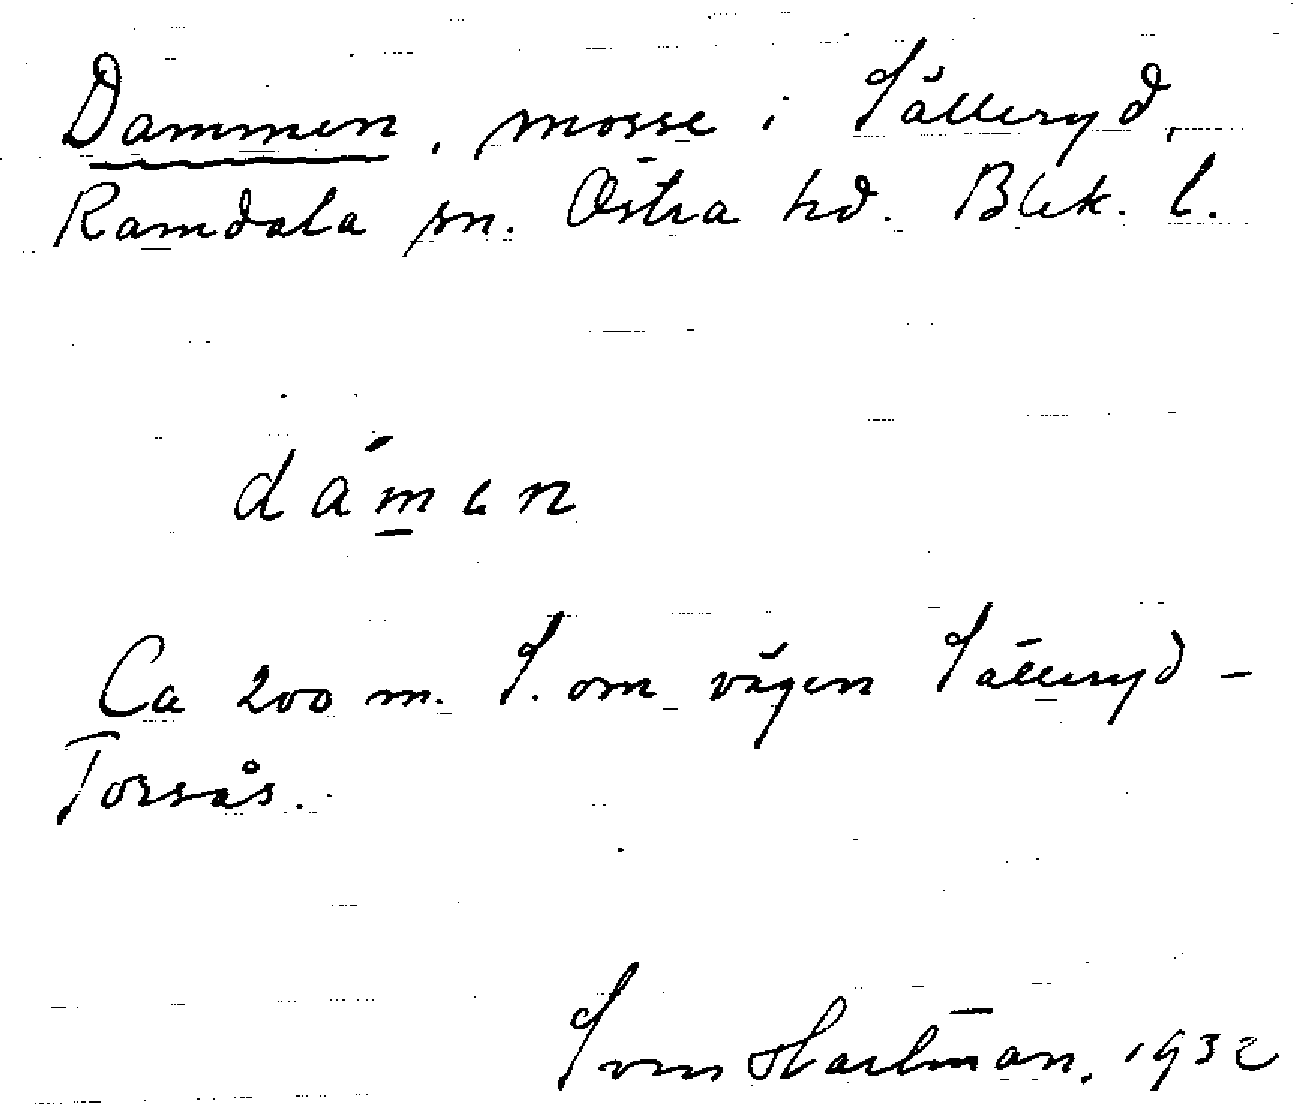 Dammen, mosse i Sälleryd,
Ramdala sn. Östra hd. Blek. l.
dám̲en
Ca 200 m. S. om vägen Sälleryd -
Torsås.
Sven Hartman, 1932